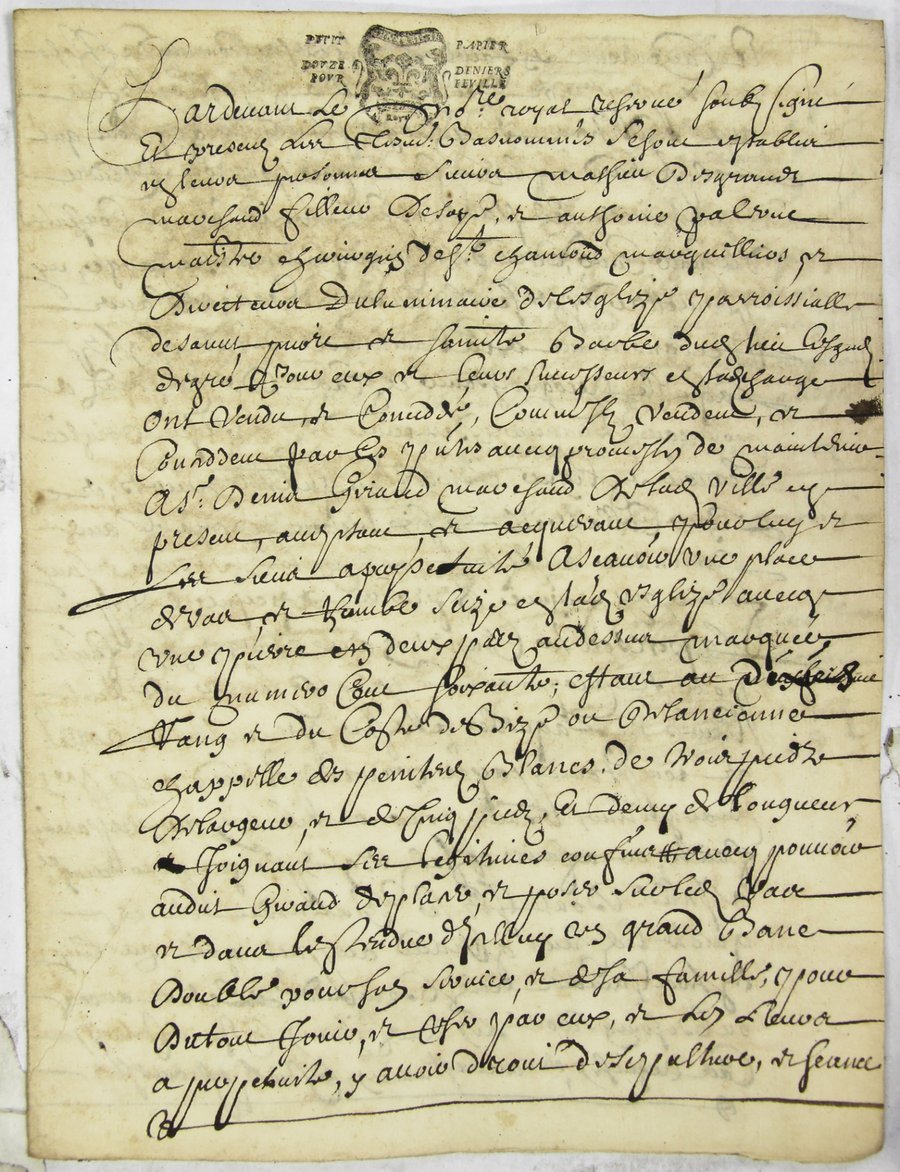 PETIT PAPIER
DOVZE DENIERS
POVR FEVILLE
Pardevant Le no.re royal reservé soubz signé
Et presens Les tesm: Basnommés se sont establis
en leurs personnes Sieurs mathieu Desgrand
marchand filleur De soye, et anthoine paleron
maistre chirurgien de St chamond marguilliers et
Directeurs Du luminaire de lesglize parroissialle
de sainct pierre et saincte Barbe dud lieu lesquels
de gré pour eux et leurs successeurs esd charge
ont vendu et Conceddé, Comme ilz vendent, et
Conceddent par ces pntes aucq promesse de maintenir
A Sr. Denis Giraud marchand de lad ville icy
present, acceptant et acquerant, pour luy et
Les siens a perpetuité Ascavoir une place
de vas et thombe size en lad esglize avecq
une pierre en deux pars audessus marquée
du numero Cent soixante, estant au
rang et du Costé de Bize ou de lancienne
chappelle des penitens Blancs, de trois piedz
de largeur, et de Cinq piedz, Et demy de longueur
Joignant ses legitimes confins avecq pouvoir
audit Giraud de placer, et poser sur led vas
et dans lestendue dicelluy un grand Banc
Double pour son service, et de sa famille, pour
Du tout Jouir, et user par eux, et les Leurs
a perpetuité, y avoir droit de sepulture, et seance
et